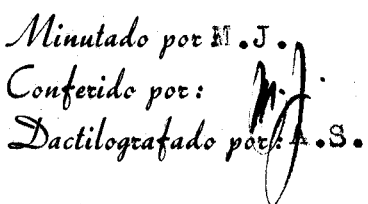 Minutado por M.J.
Conferido por: M.J.
Dactilografado por: A.S.